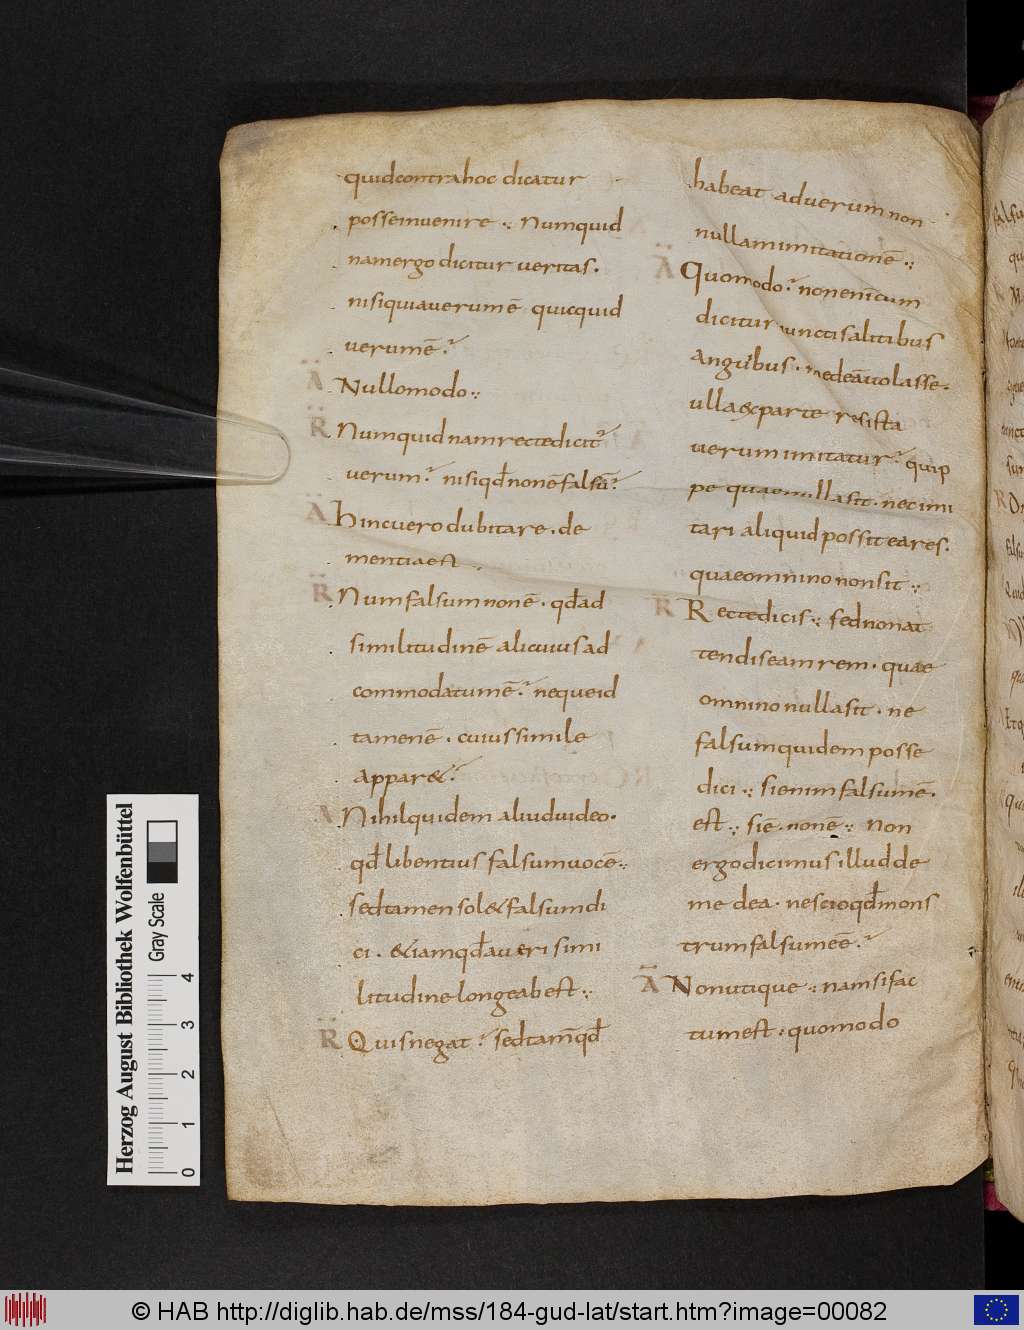 quidcontrahoc dicatur
posseinuenire ·:· Numquid
namergo dicitur ueritas.
nisiquiauerumē quicquid
uerumē.?
Ä Nullomodo ·:·
R̈ Numquid nam rectedicit?
uerum? nisiqđnonēfalsū?
Ä Hincuero dubitare . de
mentiaest ·:·
R̈ Numfalsumnonē . qđad
similitudinē alicuiusad
commodatumē.? nequeid
tamenē . cuiussimile
appar&.?
A Nihilquidem aliuduideo.
qđ libentius falsumuocē ·:·
sedtamen sol&falsumdi
ci . &iamqđaueri simi
litudinelongeabest ·:·
R̈ Quisnegat.? sedtam̄qđ
habeat aduerum non
nullamimitationē ·:·
Ä Quomodo.? nonenīcum
dicitur iunctisalitibus
anguibus . medeāuolasse.
ulla&parte resista
uerum imitatur.? quip
pe quaenullasit . necimi
tari aliquid possit eares.
quaeomnino nonsit ·:·
R̈ Rectedicis ·:· sednonat
tendiseamrem . quae
omnino nullasit . ne
falsumquidem posse
dici ·:· sienim falsumē.
est ·:· siē . nonē ·:· Non
ergodicimus illudde
me dea . nescioqđmons
trumfalsumeē.?
Ä Nonutique ·:· nam sifac
tumest . quomodo
Herzog August Bibliothek Wolfenbüttel
Gray Scale
0 1 2 3 4
© HAB http://diglib.hab.de/mss/184-gud-lat/start.htm?image=00082